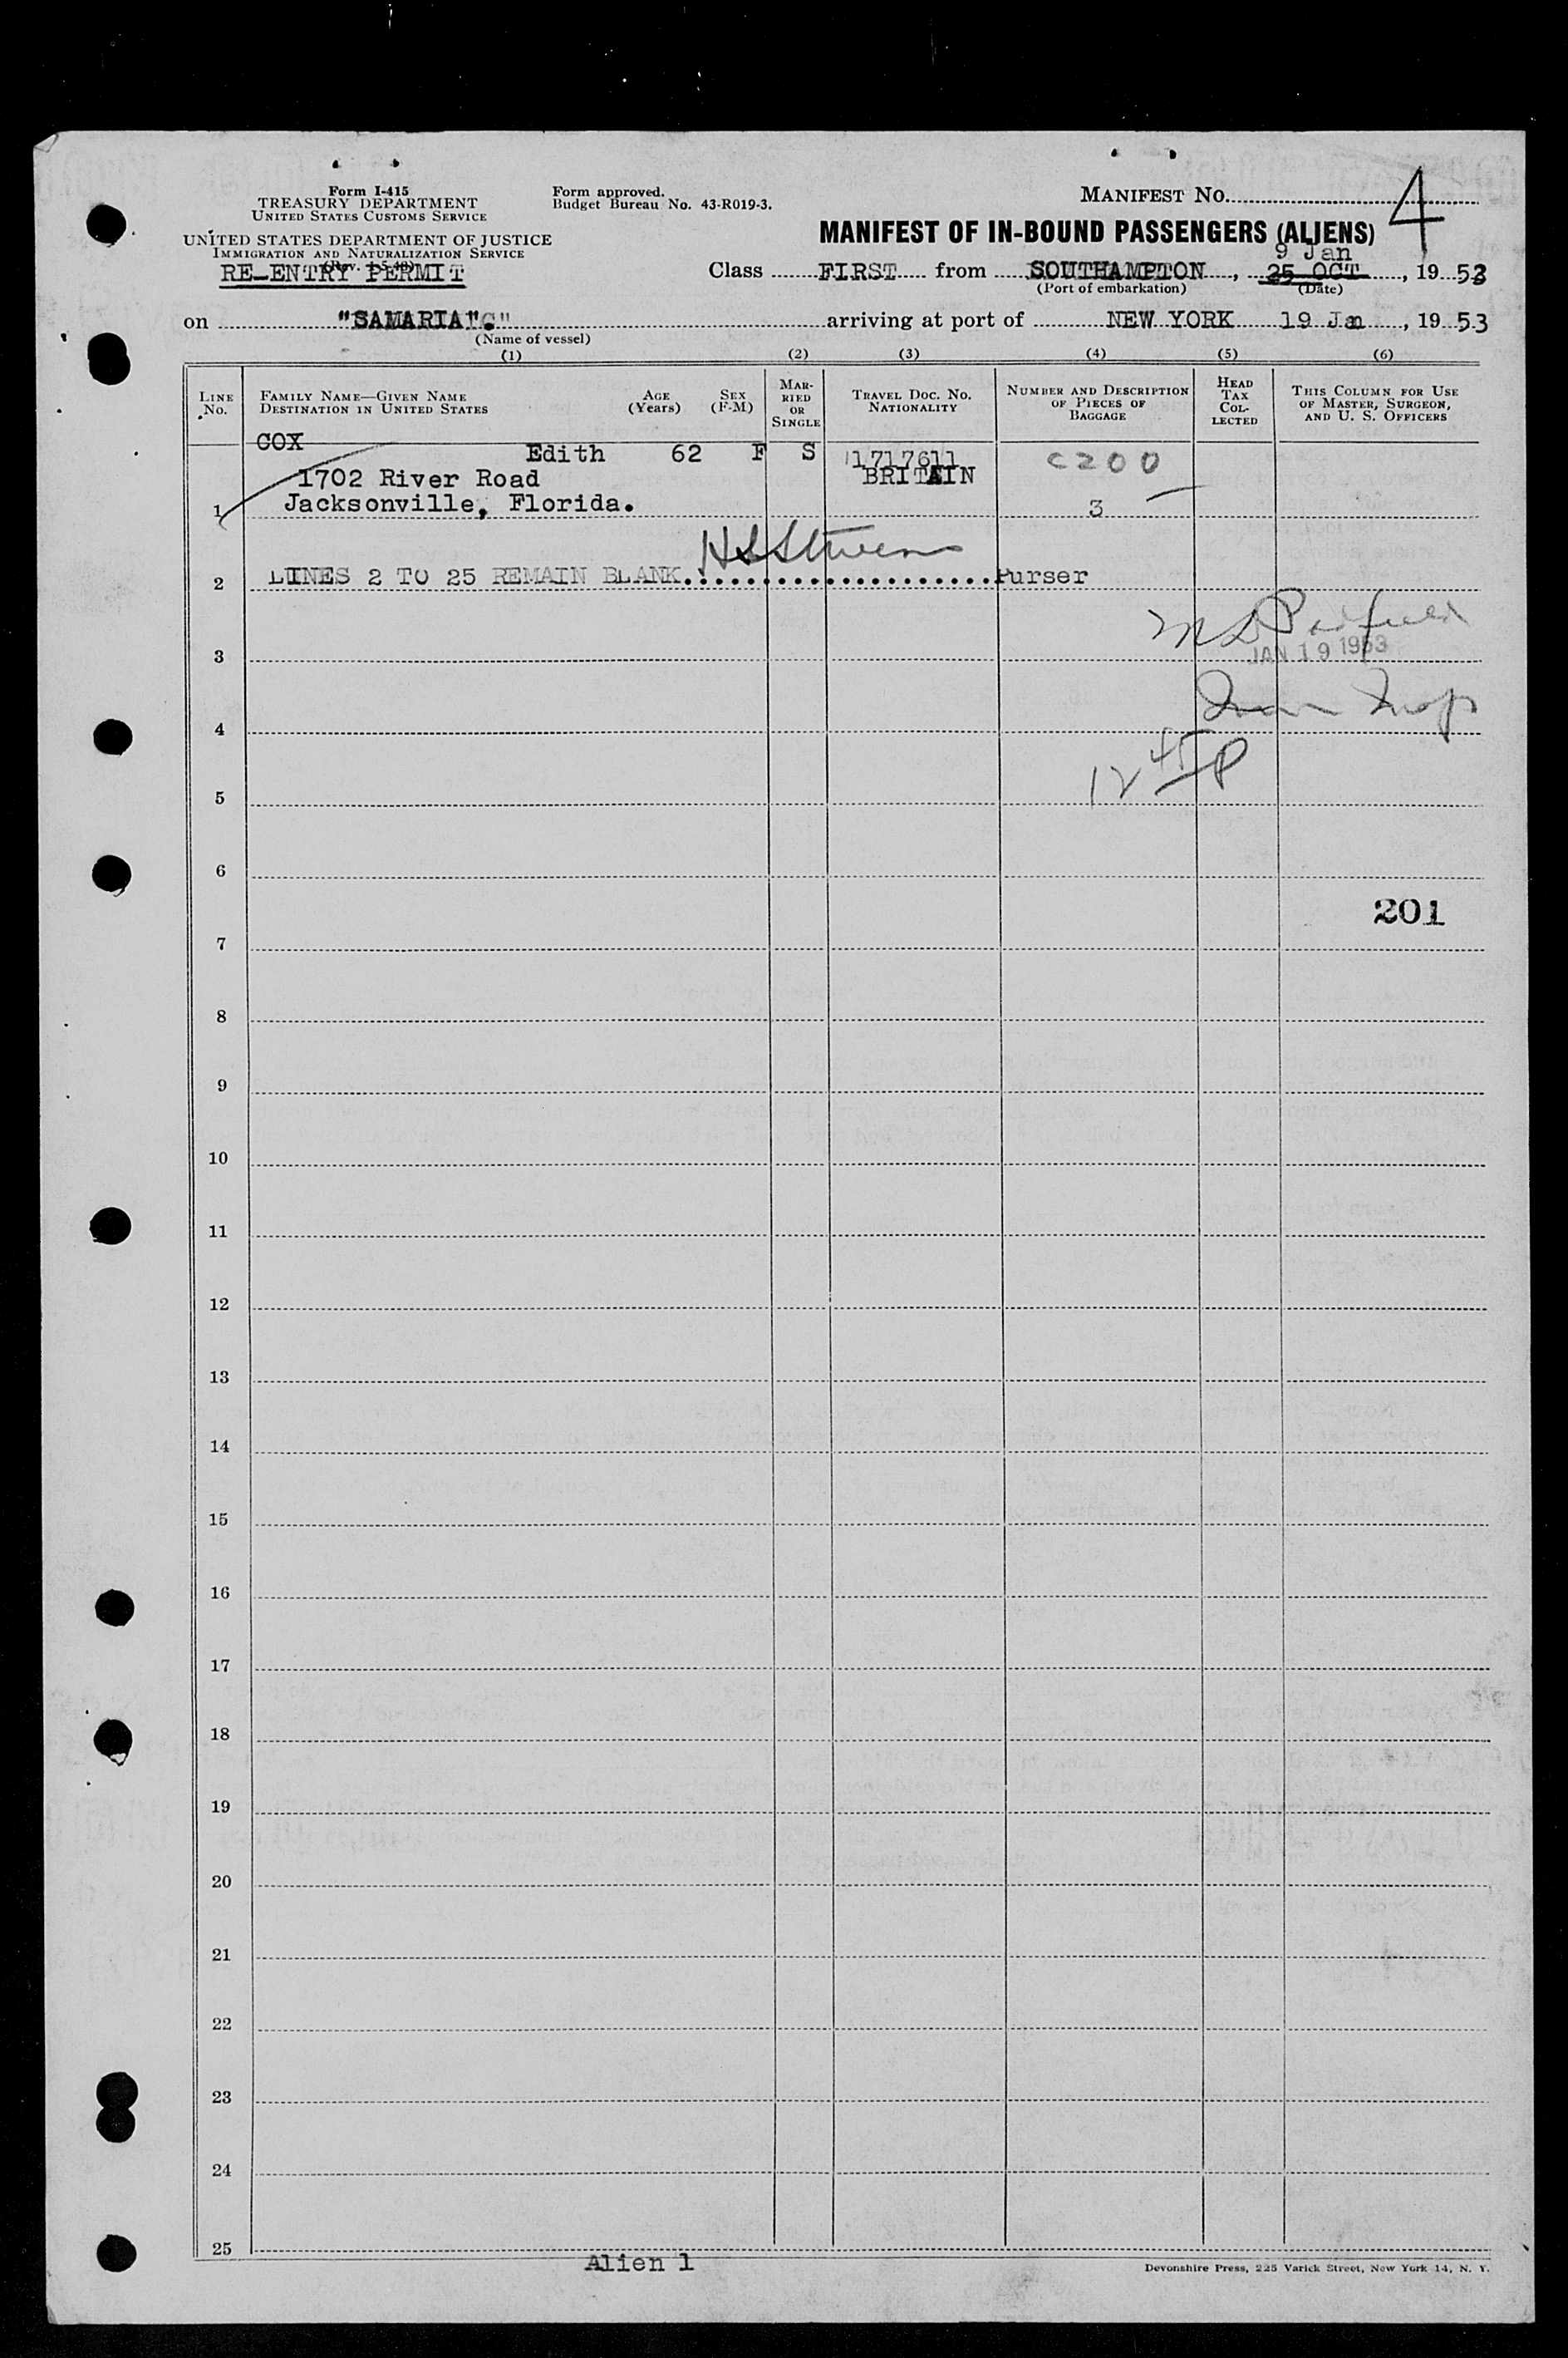 Form I-415
TREASURY DEPARTMENT
UNITED STATES CUSTOMS SERVICE
UNITED STATES DEPARTMENT OF JUSTICE
IMMIGRATION AND NATURALIZATION SERVICE
RE-ENTRY PERMIT
Form approved.
Budget Bureau No. 43-R019-3.
MANIFEST No. 4
MANIFEST OF IN-BOUND PASSENGERS (ALIENS)
9 Jan
Class FIRST from SOUTHAMPTON, 25 OCT, 1953
(Port of embarkation) (Date)
on "SAMARIA". arriving at port of NEW YORK 19 Jan, 1953
(Name of vessel)
(1) (2) (3) (4) (5) (6)
LINE No. FAMILY NAME—GIVEN NAME DESTINATION IN UNITED STATES AGE (Years) SEX (F-M) MARRIED OR SINGLE TRAVEL DOC. No. NATIONALITY NUMBER AND DESCRIPTION OF PIECES OF BAGGAGE HEAD TAX COLLECTED THIS COLUMN FOR USE OF MASTER, SURGEON, AND U. S. OFFICERS
COX Edith 62 F S 1717611 C200
1702 River Road BRITAIN
1 Jacksonville, Florida. 3
2 LINES 2 TO 25 REMAIN BLANK. Purser
JAN 19 1953
3
4
12 45 P
5
6
201
7
8
9
10
11
12
13
14
15
16
17
18
19
20
21
22
23
24
25
Alien 1
Devonshire Press, 225 Varick Street, New York 14, N. Y.